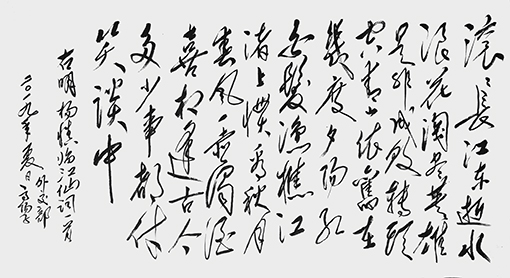 滚滚長江东逝水
浪花淘尽英雄
是非成败转头
空青山依舊在
幾度夕陽紅
白髮漁樵江
渚上惯看秋月
春风一壶濁酒
喜相逢古今
多少事都付
笑談中
右明楊慎临江仙词一首
二〇一九年夏日 外交部